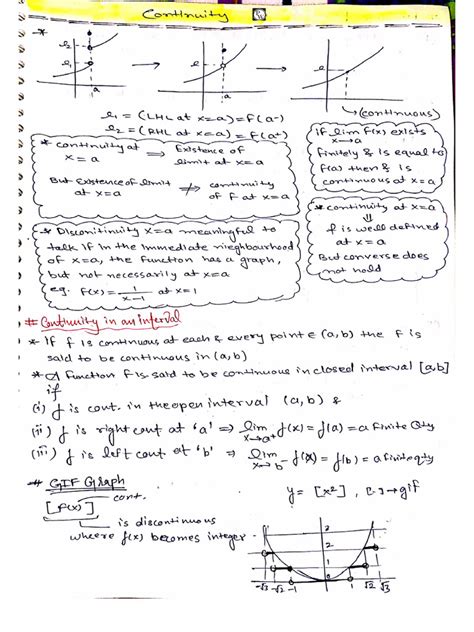 Continuity
*
l₂
l₁
a
l
l
a
(continuous)
l₁ = (LHL at x=a) = f(a-)
l₂ = (RHL at x=a) = f(a+)
* continuity at x = a ⇒ Existence of limit at x=a
But existence of limit at x=a ⇏ continuity of f at x=a
if lim x→a f(x) exists
finitely & is equal to
f(a) then f is
continuous at x=a
* Discontinuity x=a meaningful to
talk if in the immediate neighbourhood
of x=a, the function has a graph,
but not necessarily at x=a
eg. f(x) = 1/(x-1) at x=1
* continuity at x=a
⇓
f is well defined
at x=a
But converse does
not hold
# Continuity in an interval
* If f is continuous at each & every point ∈ (a,b) the f is
said to be continuous in (a,b)
* A function f is said to be continuous in closed interval [a,b]
if
(i) f is cont. in the open interval (a,b) &
(ii) f is right cont at 'a' ⇒ lim x→a+ f(x) = f(a) = a finite Qty
(iii) f is left cont at 'b' ⇒ lim x→b- f(x) = f(b) = a finite qty
* GIF Graph
cont.
[f(x)]
is discontinuous
where f(x) becomes integer.
y = [x²] , [.] → gif
3
2
1
0
-√3 -√2 -1 1 √2 √3